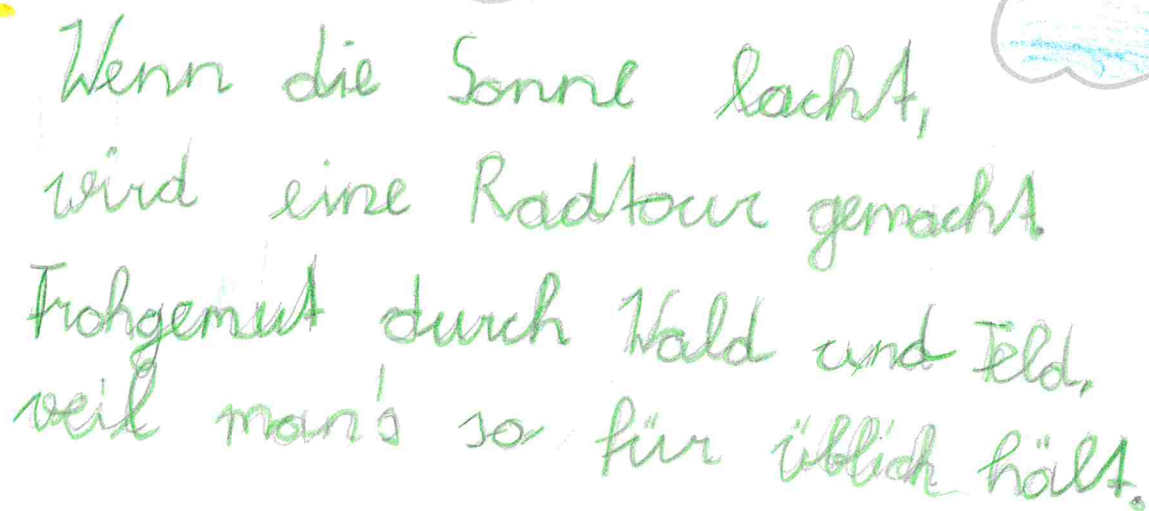 Wenn die Sonne lacht,
wird eine Radtour gemacht.
Frohgemut durch Wald und Feld,
weil man's so für üblich hält.